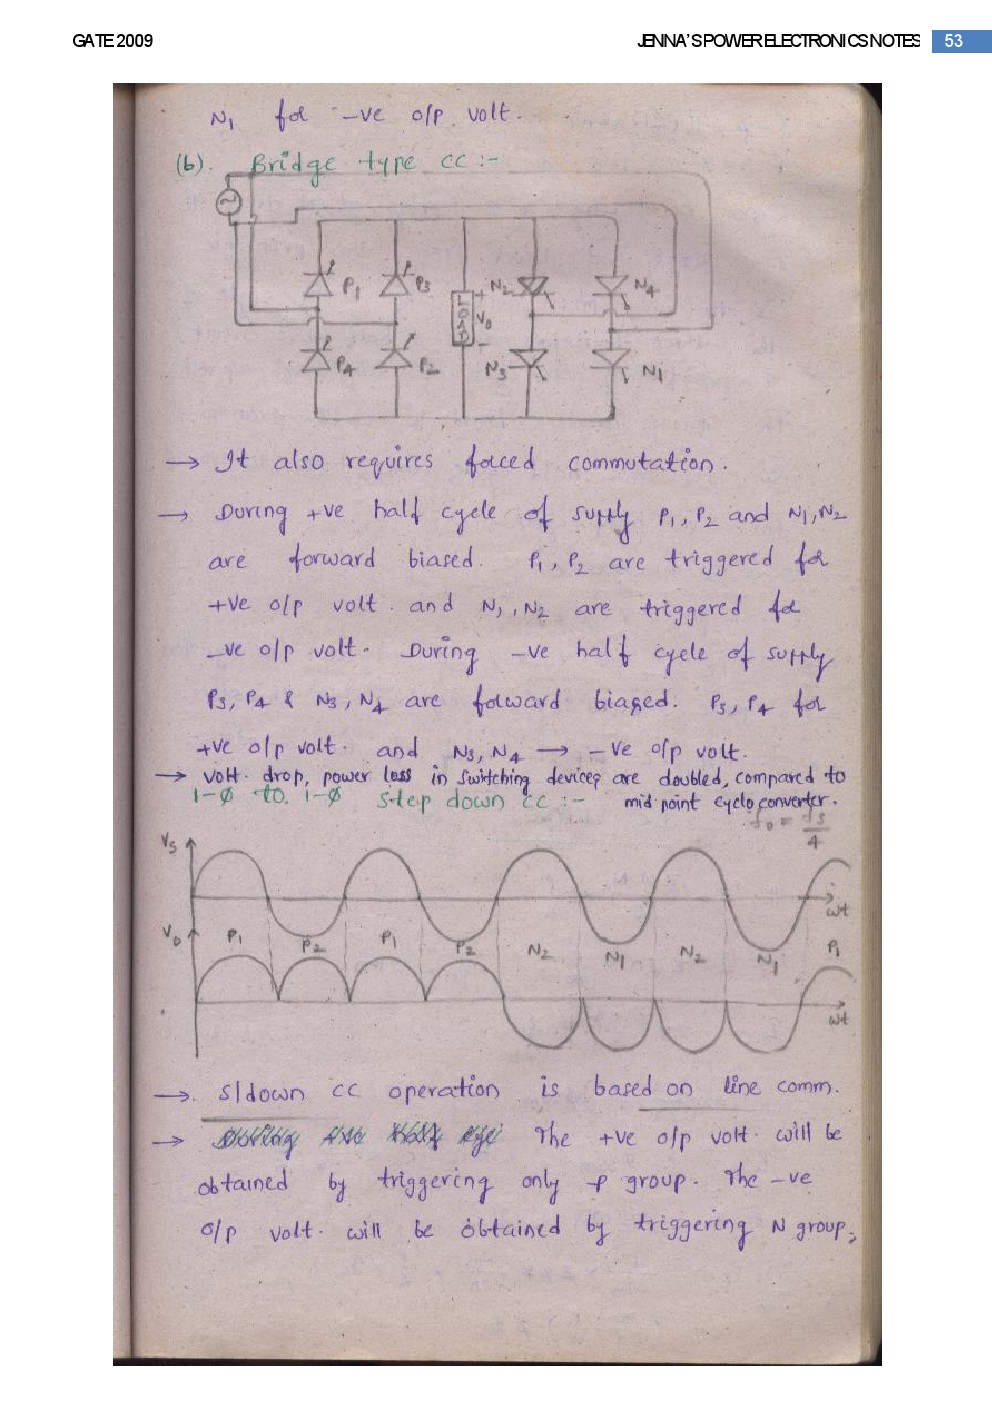 GATE 2009 JENNA'S POWER ELECTRONICS NOTES 53
N1 for -ve o/p volt.
(b). Bridge type CC :-
P1 P3 N2 N4
LOAD + V0 -
P4 P2 N3 N1
→ It also requires forced commutation.
→ During +ve half cycle of supply P1, P2 and N1, N2
are forward biased. P1, P2 are triggered for
+ve o/p volt. and N1, N2 are triggered for
-ve o/p volt. During -ve half cycle of supply
P3, P4 & N3, N4 are forward biased. P3, P4 for
+ve o/p volt. and N3, N4 → -ve o/p volt.
→ volt. drop, power loss in switching devices are doubled, compared to
1-Φ to 1-Φ step down CC :- mid-point cyclo converter.
f0 = fs/4
Vs
wt
V0 P1 P2 P1 P2 N2 N1 N2 N1 P1
wt
→ s/down CC operation is based on line comm.
→ The +ve o/p volt. will be
obtained by triggering only P group. The -ve
o/p volt. will be obtained by triggering N group,